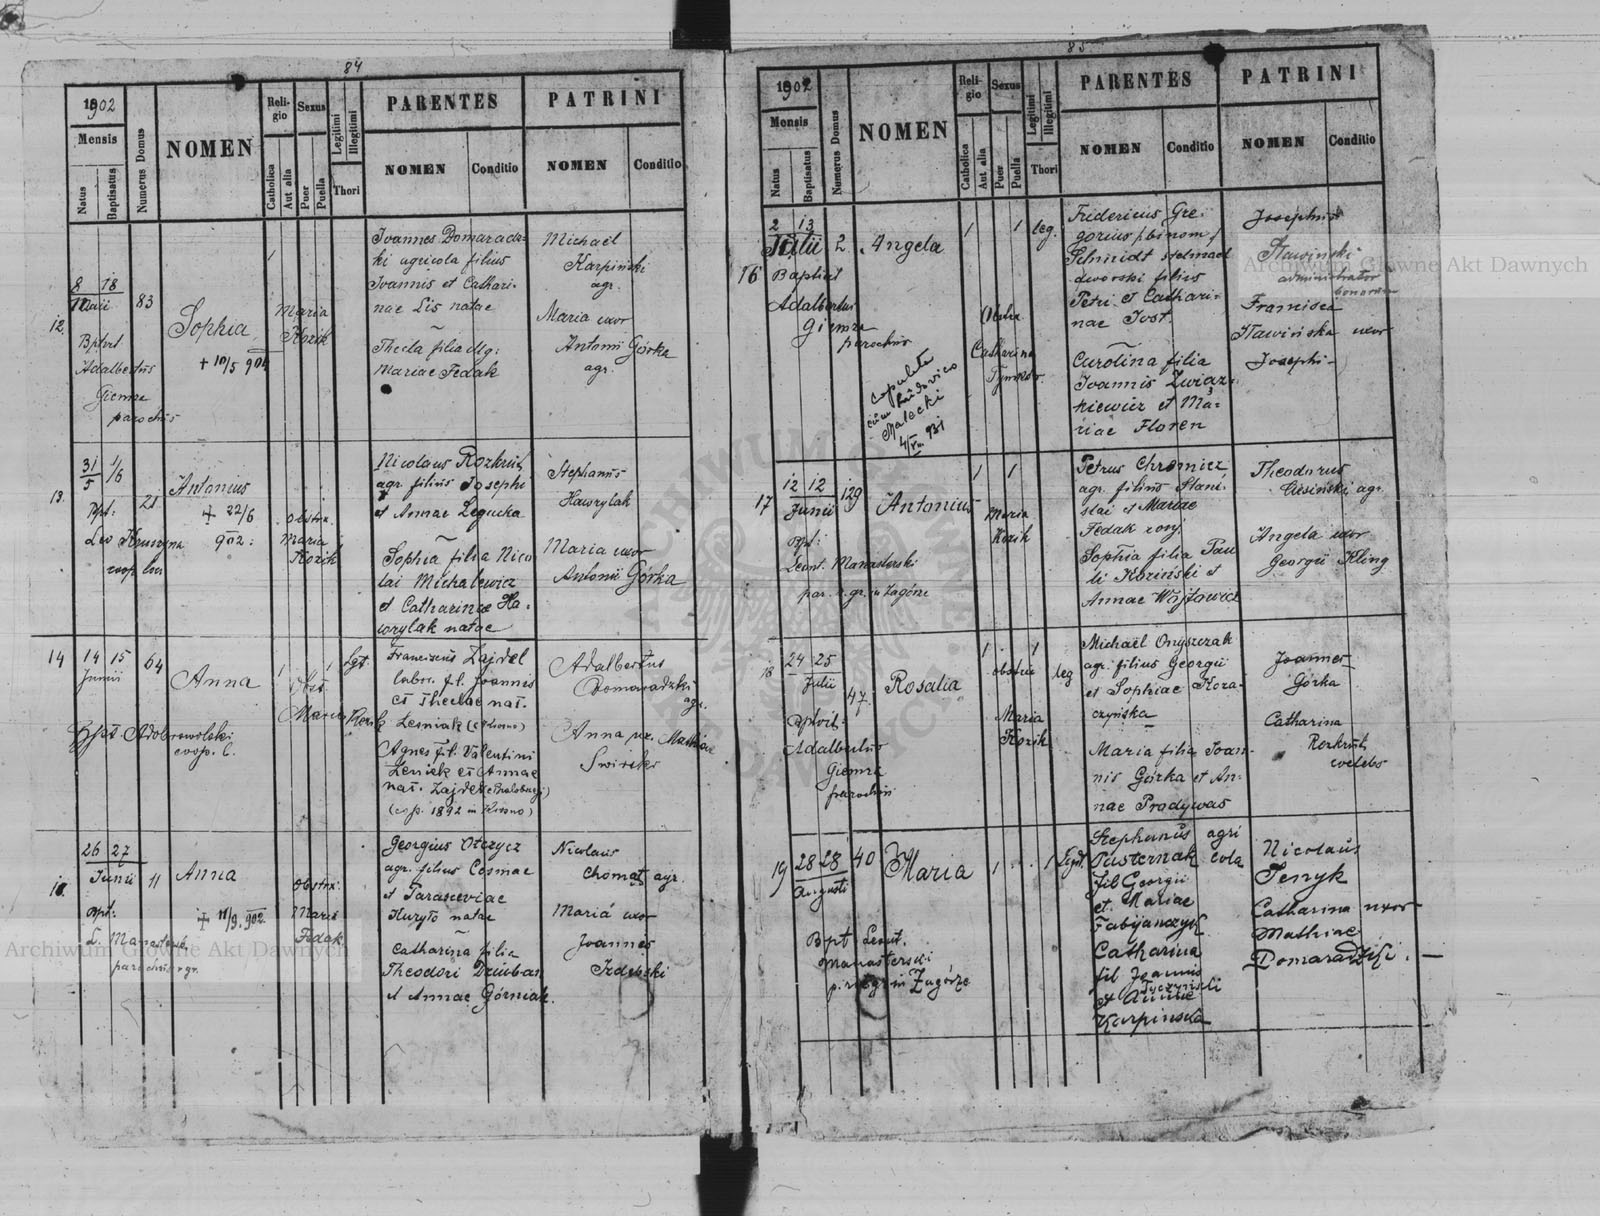 84
1902
Mensis
Natus
Baptisatus
Numerus Domus
NOMEN
Religio
Catholica
Aut alia
Sexus
Puer
Puella
Legitimi
Illegitimi
Thori
PARENTES
NOMEN
Conditio
PATRINI
NOMEN
Conditio
12.
8 18
Maii
83
Bptvt
Adalbertus
Giemza
parochus
Sophia
+ 10/5 904
1
Maria
Kozik
Joannes Domaradz-
ki agricola filius
Joannis et Cathari-
nae Lis natae
Thecla filia illg:
Mariae Fedak
Michael
Karpiński
agr.
Maria uxor
Antonii Górka
agr.
13.
31/5 1/6
21
Bpt:
Leo
coop. loci
Antonius
+ 22/6
902:
obstx.
Maria
Kozik
Nicolaus Rozkrut
agr. filius Josephi
et Annae Legucka
Sophia filia Nico
lai Michalewicz
et Catharinae Ha-
wrylak natae
Stephanus
Hawrylak
Maria uxor
Antonii Górka
14
14 15
Junii
64
Bpt Adobrowolski
coop. l.
Anna
1 1
Lgt.
Obst
Maria Kozik
Franciscus Zajdel
labor. f. l. Joannis
et Theclae nat.
Lesniak
Agnes fil. Valentini
Lesniak et Annae
nat. Zajdel
(cop. 1892 in Krosno)
Adalbertus
Domaradzki
agr.
Anna ux. Mathiae
26 27
Junii
11
Bpt:
L. Manasterski
parochus r gr.
Anna
+ 11/9. 902.
obstx.
Maria
Fedak
Georgius Otczycz
agr. filius Cosmae
et Parasceviae
Kuryło natae
Catharina filia
Theodori Dziuban
et Annae Górniak.
Nicolaus
Chomat agr.
Maria uxor
Joannis
Izdebski
85
1902
Mensis
Natus
Baptisatus
Numerus Domus
NOMEN
Religio
Catholica
Aut alia
Sexus
Puer
Puella
Legitimi
Illegitimi
Thori
PARENTES
NOMEN
Conditio
PATRINI
NOMEN
Conditio
16
2 13
Julii
2
Baptivt
Adalbertus
Giemza
parochus
Angela
copulata
cum Ludovico
Malecki
1 1 leg.
Obstx.
Catharina
Fridericus Gre-
gorius /binom/
Schmidt stelmach
dworski filius
Petri et Cathari-
nae Jost.
Carolina filia
Joannis Zwiaz-
kiewicz et Ma-
riae Floren
Josephus
Sławiński
administrator
bonorum
Francisca
Sławińska uxor
Josephi
17
12 12
Junii
129
Bpt:
Leont. Manasterski
par. r. gr. in Zagórze
Antonius
1 1
Maria
Kozik
Petrus Chromicz
agr. filius Stani-
slai et Mariae
Fedak conj:
Sophia filia Pau
li Koziński et
Annae Wójtowicz
Theodorus
Ciesiński agr.
Angela uxor
Georgii Kling
18
24 25
Julii
47.
Bptvit.
Adalbertus
Giemza
parochus
Rosalia
1 1
obstxa
leg
Maria
Kozik
Michaël Onyszczak
agr. filius Georgii
et Sophiae Kora-
czyńska
Maria filia Joan-
nis Górka et An-
nae Prodywas
Joannes
Górka
Catharina
Rozkrut
coelebs
19
28 28
Augusti
40
Bpt Leont.
Manasterski
par. r gr in Zagórze
Maria
1 1 Legit.
Stephanus agri
Pasternak cola
fil Georgii
et Mariae
Fabijanczyk
Catharina
fil Joannis
Tyczyński
et Annae
Karpinska
Nicolaus
Jenyk
Catharina uxor
Mathiae
Domaradzki.
Archiwum Główne Akt Dawnych
Archiwum Główne Akt Dawnych
ARCHIWUM GŁÓWNE AKT DAWNYCH